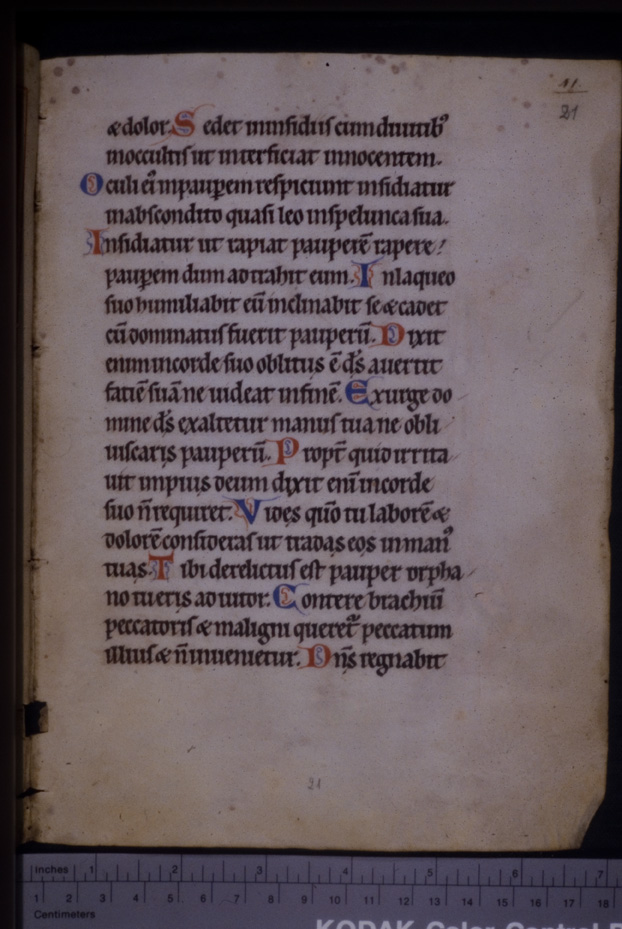 11.
21
& dolor. Sedet in insidiis cum diuitib᾽
in occultis ut interficiat innocentem.
Oculi ei᾽ in paupem respiciunt insidiatur
in abscondito quasi leo in spelunca sua.
Insidiatur ut rapiat pauperē rapere!
paupem dum adtrahit eum. In laqueo
suo humiliabit eū inclinabit se & cadet
cū dominatus fuerit pauperū. Dixit
enim in corde suo oblitus ē ds̄ auertit
fatiē suā ne uideat in finē. Exurge do
mine ds̄ exaltetur manus tua ne obli
uiscaris pauperū. Propt̄ quid irrita
uit impius deum dixit eni᷎ in corde
suo n̄ requiret. Vides quō tu laborē &
dolorē consideras ut tradas eos in man᾽
tuas. Tibi derelictus est pauper orpha
no tu eris adiutor. Contere brachiū
peccatoris & maligni queret᷎ peccatum
illius & n̄ inuenietur. Dn̄s regnabit
21
inches 1 2 3 4 5 6 7
1 2 3 4 5 6 7 8 9 10 11 12 13 14 15 16 17 18
Centimeters
KODAK Color Control P